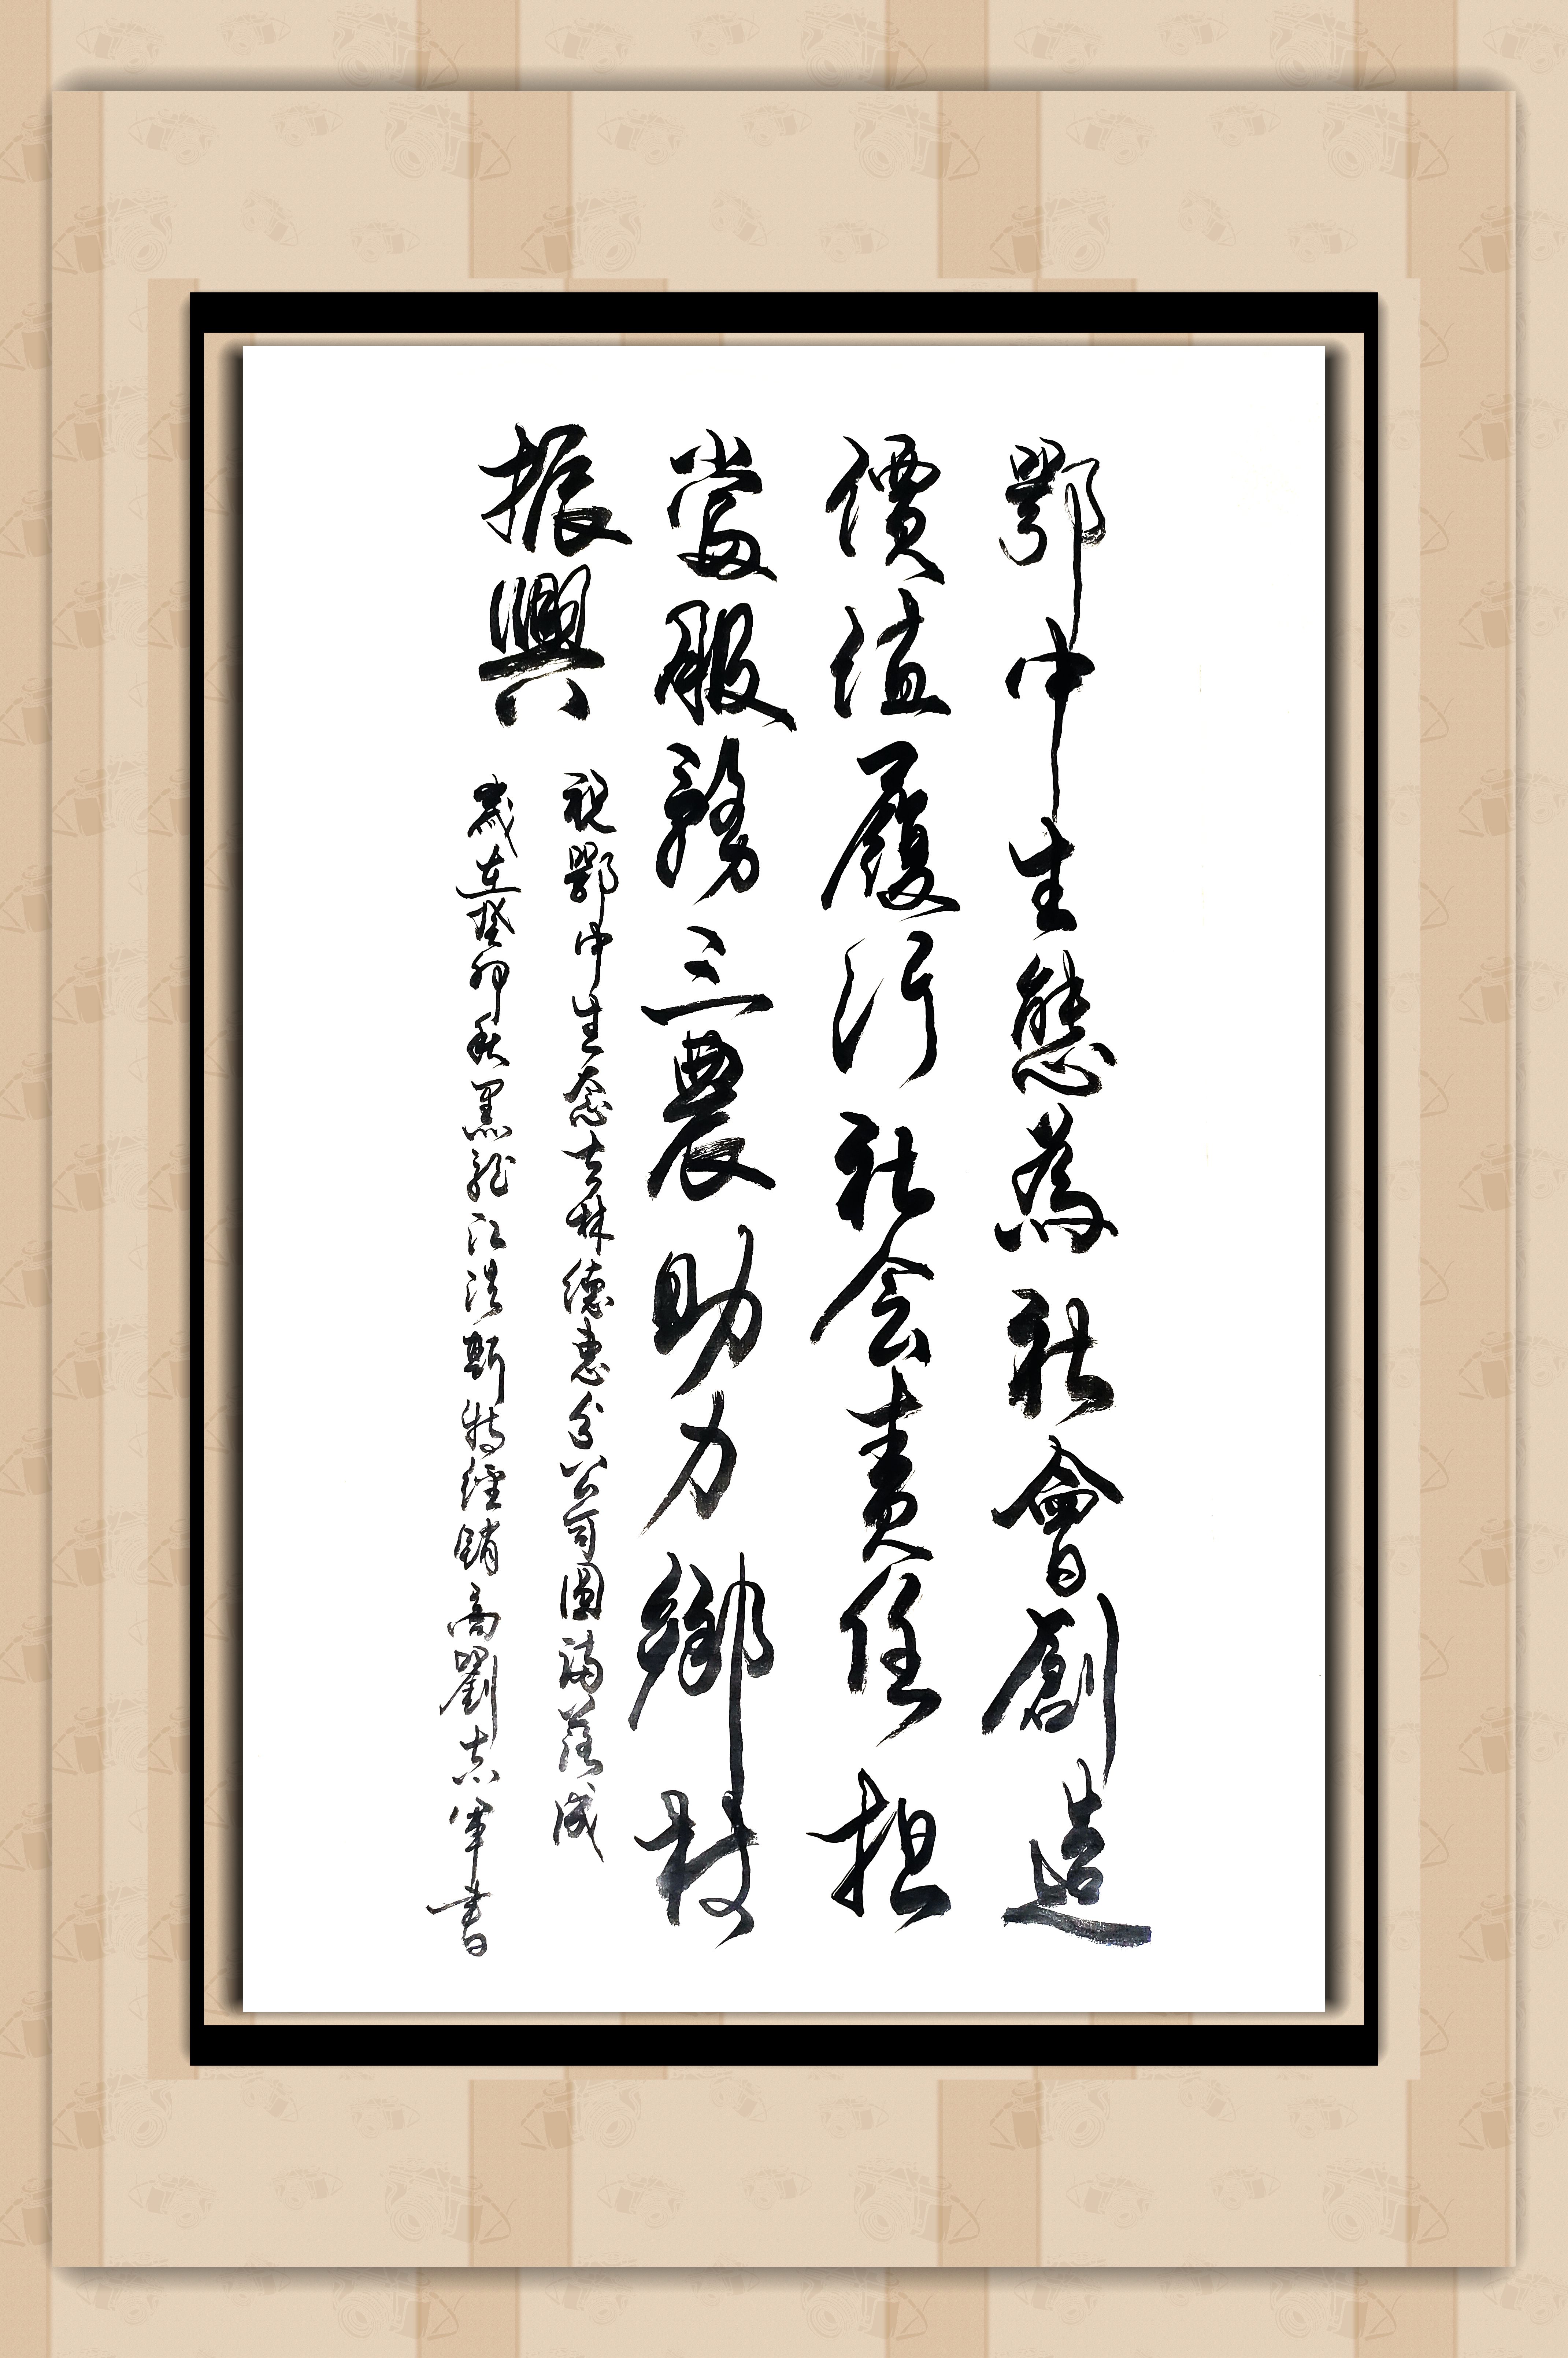 鄂中生態為社會創造
價值履行社会責任担
當服務三農助力鄉村
振興
祝鄂中生态吉林德惠分公司圆满落成
歲在癸卯秋黑龙江浩斯特經銷商劉志军書